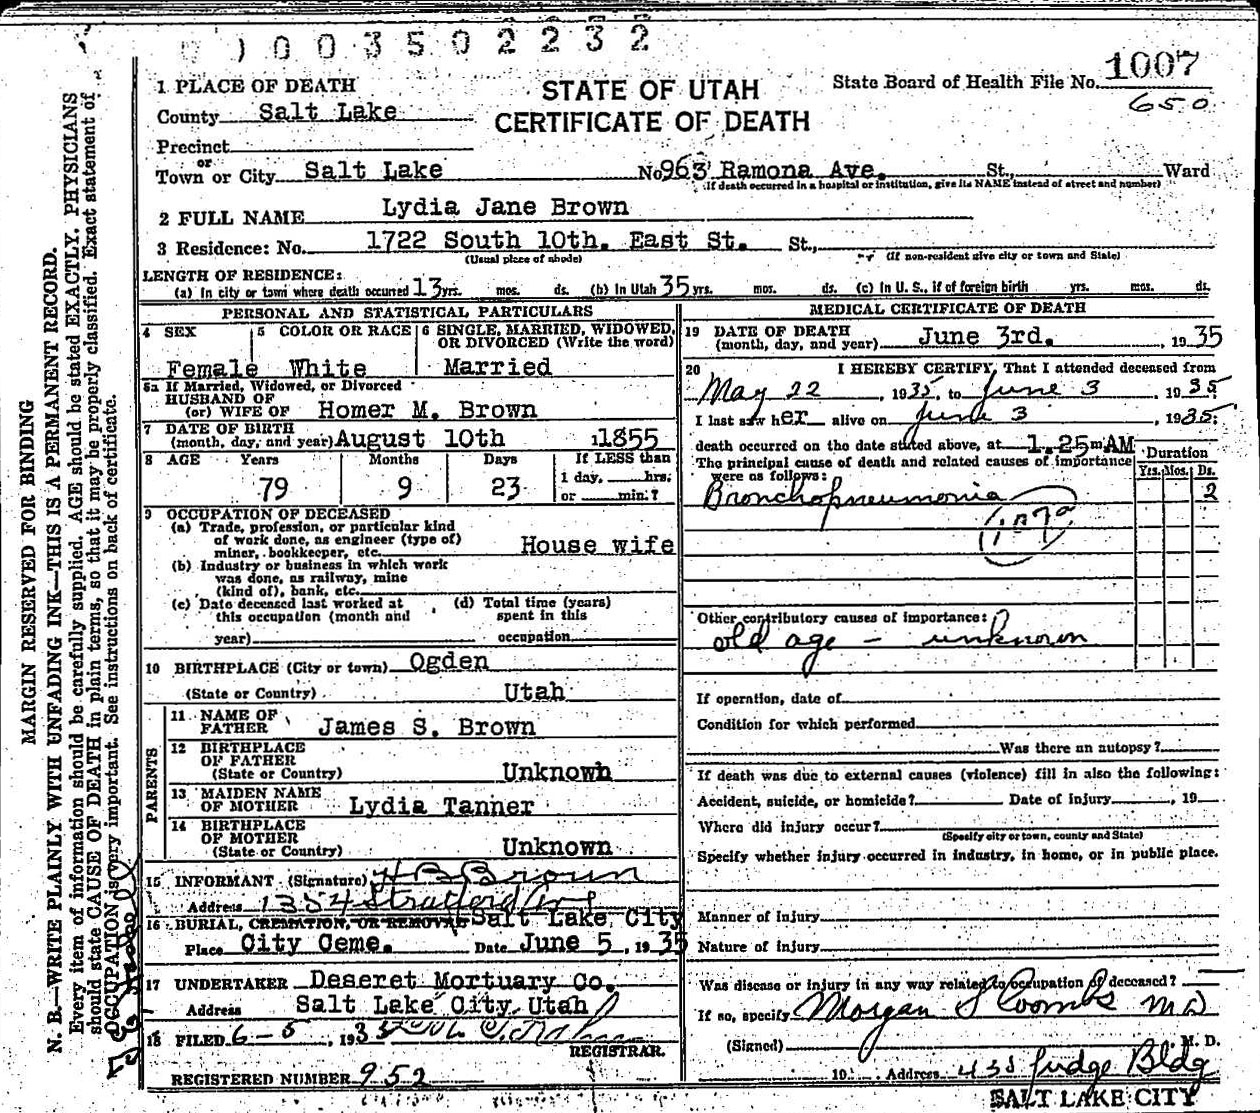 0 0 3 5 0 2 2 3 2
1007
State Board of Health File No.
650
STATE OF UTAH
CERTIFICATE OF DEATH
1 PLACE OF DEATH
County Salt Lake
Precinct
or
Town or City Salt Lake No. 963 Ramona Ave. St., Ward
(If death occurred in a hospital or institution, give its NAME instead of street and number)
2 FULL NAME Lydia Jane Brown
3 Residence: No. 1722 South 10th. East St. St.,
(Usual place of abode) (If non-resident give city or town and State)
LENGTH OF RESIDENCE:
(a) In city or town where death occurred 13 yrs. mos. ds. (b) In Utah 35 yrs. mos. ds. (c) In U. S., if of foreign birth yrs. mos. ds.
PERSONAL AND STATISTICAL PARTICULARS
4 SEX Female
5 COLOR OR RACE White
6 SINGLE, MARRIED, WIDOWED,
OR DIVORCED (Write the word)
Married
5a If Married, Widowed, or Divorced
HUSBAND OF
(or) WIFE OF Homer M. Brown
7 DATE OF BIRTH
(month, day, and year) August 10th 1855
8 AGE Years Months Days If LESS than
1 day, hrs.
or min.?
79 9 23
9 OCCUPATION OF DECEASED
(a) Trade, profession, or particular kind
of work done, as engineer (type of)
miner, bookkeeper, etc. House wife
(b) Industry or business in which work
was done, as railway, mine
(kind of), bank, etc.
(c) Date deceased last worked at
this occupation (month and
year)
(d) Total time (years)
spent in this
occupation
10 BIRTHPLACE (City or town) Ogden
(State or Country) Utah
PARENTS
11 NAME OF
FATHER James S. Brown
12 BIRTHPLACE
OF FATHER
(State or Country) Unknown
13 MAIDEN NAME
OF MOTHER Lydia Tanner
14 BIRTHPLACE
OF MOTHER
(State or Country) Unknown
15 INFORMANT (Signature) H B Brown
Address 1354 Stratford Ave
16 BURIAL, CREMATION, OR REMOVAL Salt Lake City
Place City Ceme. Date June 5, 1935
17 UNDERTAKER Deseret Mortuary Co.
Address Salt Lake City, Utah
18 FILED 6-5, 1935
REGISTRAR.
REGISTERED NUMBER 952
MEDICAL CERTIFICATE OF DEATH
19 DATE OF DEATH
(month, day, and year) June 3rd., 1935
20 I HEREBY CERTIFY, That I attended deceased from
May 22, 1935, to June 3 1935
I last saw her alive on June 3, 1935
death occurred on the date stated above, at 1.25 m. AM
The principal cause of death and related causes of importance
were as follows:
Duration
Yrs. Mos. Ds.
Bronchopneumonia 2
107a
Other contributory causes of importance:
old age - unknown
If operation, date of
Condition for which performed
Was there an autopsy?
If death was due to external causes (violence) fill in also the following:
Accident, suicide, or homicide? Date of injury, 19
Where did injury occur?
(Specify city or town, county and State)
Specify whether injury occurred in industry, in home, or in public place.
Manner of Injury
Nature of Injury
Was disease or injury in any way related to occupation of deceased?
If so, specify Morgan S Coombs M D
(Signed) M. D.
19 Address 433 Judge Bldg
SALT LAKE CITY
MARGIN RESERVED FOR BINDING
N. B.—WRITE PLAINLY WITH UNFADING INK—THIS IS A PERMANENT RECORD.
Every item of information should be carefully supplied. AGE should be stated EXACTLY. PHYSICIANS
should state CAUSE OF DEATH in plain terms, so that it may be properly classified. Exact statement of
OCCUPATION is very important. See instructions on back of certificate.